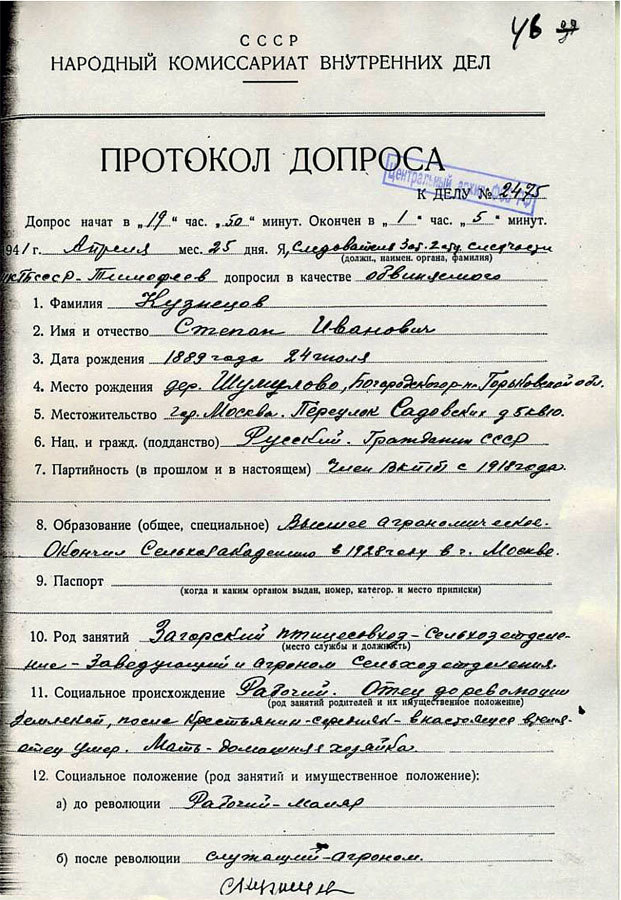 46
СССР
НАРОДНЫЙ КОМИССАРИАТ ВНУТРЕННИХ ДЕЛ
ПРОТОКОЛ ДОПРОСА
Центральный архив ФСБ РФ
К ДЕЛУ № 2475
Допрос начат в „19“ час. „50“ минут. Окончен в „1“ час. „5“ минут.
1941 г. Апреля мес. 25 дня. Я, следователь следчасти
(должн., наимен. органа, фамилия)
СССР - Тимофеев допросил в качестве обвиняемого
1. Фамилия Кузнецов
2. Имя и отчество Степан Иванович
3. Дата рождения 1889 года 24 июля
4. Место рождения дер. Шумулово, Богородского р-на Горьковской обл.
5. Местожительство гор. Москва. Переулок Садовских д 5 кв 10.
6. Нац. и гражд. (подданство) Русский. Гражданин СССР
7. Партийность (в прошлом и в настоящем) Член ВКПб с 1918 года.
8. Образование (общее, специальное) Высшее агрономическое.
Окончил Сельхозакадемию в 1928 году в г. Москве.
9. Паспорт
(когда и каким органом выдан, номер, категор. и место приписки)
10. Род занятий Загорский птицесовхоз - сельхозотделе-
(место службы и должность)
ние - Заведующий и агроном сельхозотделения.
11. Социальное происхождение Рабочий. Отец до революции
(род занятий родителей и их имущественное положение)
после крестьянин-середняк - в настоящее время
отец умер. Мать - домашняя хозяйка.
12. Социальное положение (род занятий и имущественное положение):
а) до революции Рабочий - маляр
б) после революции служащий - агроном.